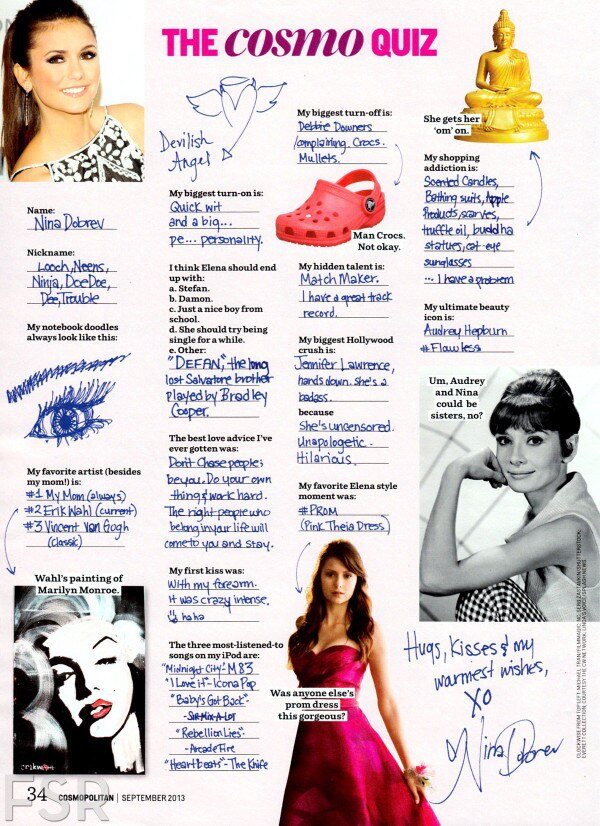 THE COSMO QUIZ
Name:
Nina Dobrev
Nickname:
Looch, Neens,
Ninja, DoeDoe,
Dee, Trouble
My notebook doodles
always look like this:
My favorite artist (besides
my mom!) is:
#1 My Mom (always)
#2 Erik Wahl (current)
#3 Vincent Van Gogh
(classic)
Wahl's painting of
Marilyn Monroe.
erikwahl
Devilish
Angel
My biggest turn-on is:
Quick wit
and a big...
pe... personality.
I think Elena should end
up with:
a. Stefan.
b. Damon.
c. Just a nice boy from
school.
d. She should try being
single for a while.
e. Other:
"DEFAN," the long
lost Salvatore brother
played by Bradley
Cooper.
The best love advice I've
ever gotten was:
Don't Chase people;
be you. Do your own
thing & work hard.
The right people who
belong in your life will
come to you and stay.
My first kiss was:
With my forearm.
It was crazy intense.
haha
The three most-listened-to
songs on my iPod are:
"Midnight City"- M83
"I Love it"- Icona Pop
"Baby's Got Back"
- Sir-Mix-A-Lot
"Rebellion Lies"
- Arcade Fire
"Heartbeats"- The Knife
My biggest turn-off is:
Debbie Downers
complaining. Crocs.
Mullets.
Man Crocs.
Not okay.
My hidden talent is:
Match Maker.
I have a great track
record.
My biggest Hollywood
crush is:
Jennifer Lawrence,
hands down. She's a
badass.
because
She's uncensored.
Unapologetic.
Hilarious.
My favorite Elena style
moment was:
#PROM
(Pink Theia Dress)
Was anyone else's
prom dress
this gorgeous?
She gets her
'om' on.
My shopping
addiction is:
Scented Candles,
Bathing suits, Apple
Products, scarves,
truffle oil, buddha
statues, cat-eye
sunglasses
... I have a problem
My ultimate beauty
icon is:
Audrey Hepburn
#Flawless
Um, Audrey
and Nina
could be
sisters, no?
Hugs, kisses & my
warmest wishes,
XO
Nina Dobrev
34 COSMOPOLITAN | SEPTEMBER 2013
FSR